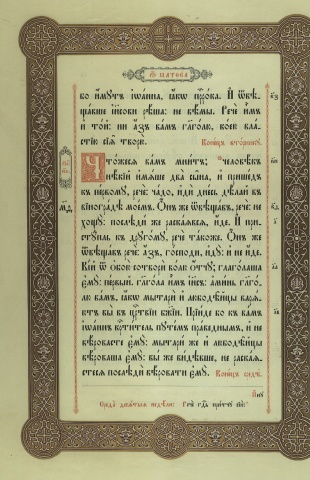 Ѿ МАТѲЕА
бо и҆мꙋтъ і҆ѡа́нна, ꙗ҆́кѡ прⷪ҇ро́ка. И҆ ѿвѣ-
ща́вше і҆и҃сови рѣ́ша: не вѣ́мы. Рече́ и҆̀мъ
и҆ то́й: ни а҆́зъ ва́мъ гл҃го́лю, ко́ею вла́-
стїю сїѧ̑ творю̀. Коне́цъ вто́рникꙋ.
Что́ же сѧ ва́мъ мни́тъ; человѣ́къ
нѣ́кїй и҆мѧ́ше два̀ сы̑на, и҆ прише́дъ
къ пе́рвомꙋ, речѐ: ча́до, и҆дѝ дне́сь дѣ́лай въ
вїногра́дѣ мое́мъ. Ѻ҆́нъ же ѿвѣща́въ, речѐ: не
хощꙋ̀: послѣди́ же раска́ѧвсѧ, и҆́де. И҆ при-
стꙋ́пль къ дрꙋго́мꙋ, речѐ та́коже. Ѻ҆́нъ же
ѿвѣща́въ речѐ: а҆́зъ, го́споди, и҆дꙋ̀: и҆ не и҆́де.
Кі́й ѿ ѻ҆бою̀ сотворѝ во́лю ѻ҆́тчꙋ; глаго́лаша
є҆мꙋ̀: пе́рвый. глаго́ла и҆̀мъ і҆и҃съ: а҆ми́нь глаго́-
лю ва́мъ, ꙗ҆́кѡ мытарѝ и҆ любодѣ̑йцы варѧ́-
ютъ вы̀ въ ца́рствїи бж҃їи. Прїи́де бо къ ва́мъ
і҆ѡа́ннъ крⷭ҇ти́тель пꙋте́мъ пра́веднымъ, и҆ не
вѣ́ровасте є҆мꙋ̀: мытарі́е же и҆ любодѣ̑йцы
вѣ́роваша є҆мꙋ̀: вы́ же ви́дѣвше, не раска́ѧ-
стесѧ послѣдѝ вѣ́ровати є҆мꙋ̀. Коне́цъ